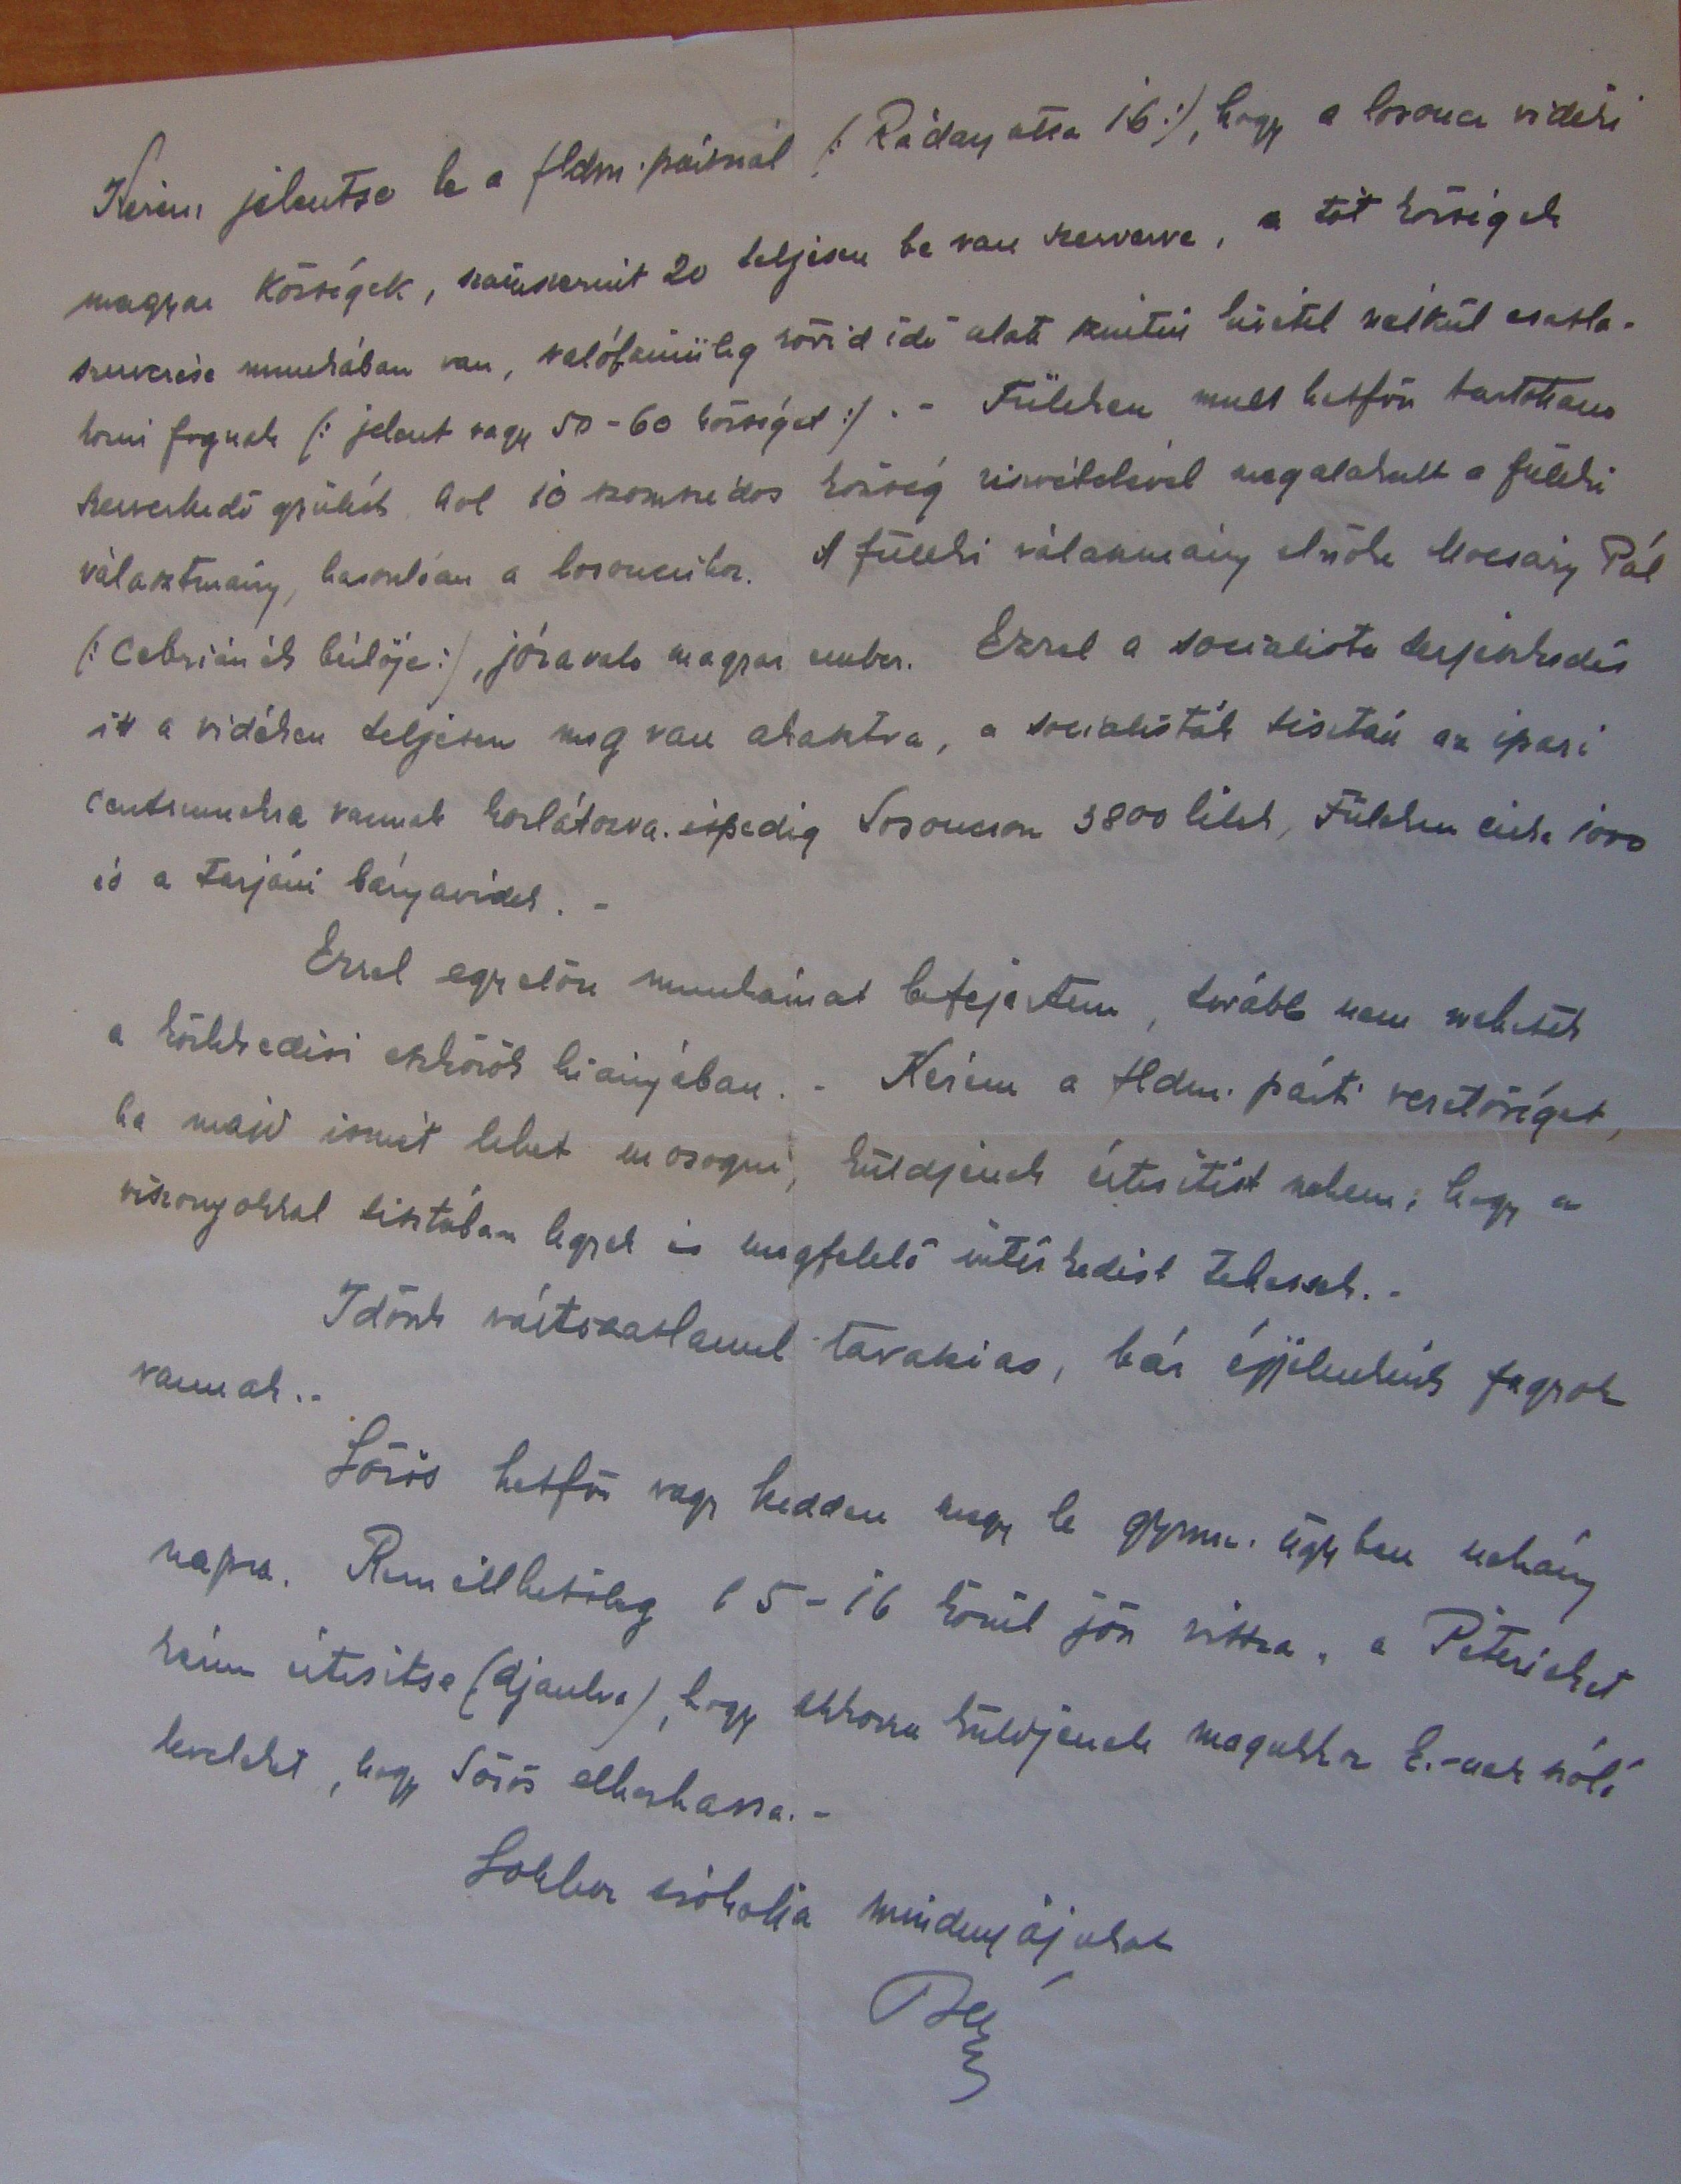 Kérem jelentse be a fldm. pártnál (: Ráday utca 16 :), hogy a losonc vidéki
magyar községek, számszerint 20 teljesen be van szervezve, a tót községek
szervezése munkában van, valószinüleg rövid idő alatt szintén kivétel nélkül csatla-
kozni fognak (: jelent vagy 50-60 községet :). - Füleken mult hétfőn tartottam
szervezkedő gyülést hol 10 szomszédos község részvételével megalakult a füleki
választmány, hasonlóan a losoncihoz. A füleki választmány elnöke Mocsáry Pál
(: Cebriánék bérlője :), jóravaló magyar ember. Ezzel a socialista terjeszkedés
itt a vidéken teljesen meg van akasztva, a socialisták tisztán az ipari
centrumokra vannak korlátozva. éspedig Losoncon 3800 lélek, Füleken circa 1000
és a tarjáni bányavidék. -
Ezzel egyelőre munkámat befejeztem, tovább nem mehetek
a közlekedési eszközök hiányában. - Kérem a fldm. párti vezetőséget,
ha majd ismét lehet mozogni, küldjenek értesitést nekem, hogy a
viszonyokkal tisztában legyek és megfelelő intézkedést tehessek. -
Időnk változatlanul tavaszias, bár éjjelenként fagyok
vannak. -
Sörös hétfőn vagy kedden megy le gymn. ügyben néhány
napra. Remélhetőleg 15-16 körül jön vissza, a Péterieket
kérem értesitse (ajánlva), hogy akkorra küldjenek magukhoz E.-nek szóló
leveleket, hogy Sörös elhozhassa. -
Sokszor csókolja mindnyájukat